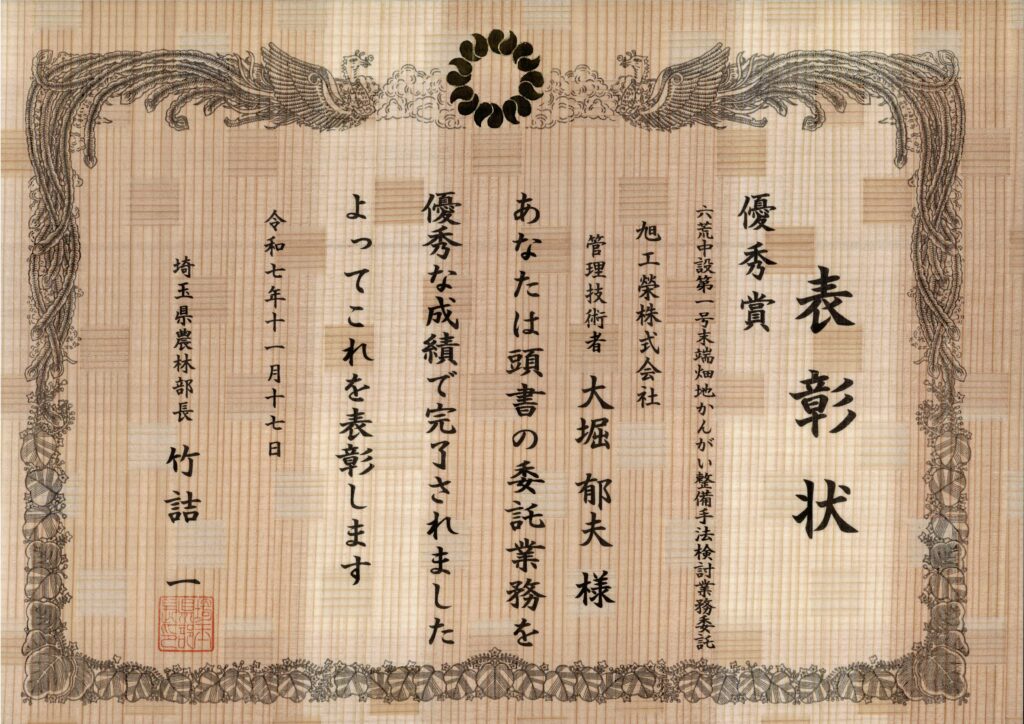 表彰状
優秀賞
六荒中設第一号末端畑地かんがい整備手法検討業務委託
旭工榮株式会社
管理技術者 大堀 郁夫 様
あなたは頭書の委託業務を
優秀な成績で完了されました
よってこれを表彰します
令和七年十一月十七日
埼玉県農林部長 竹詰 一